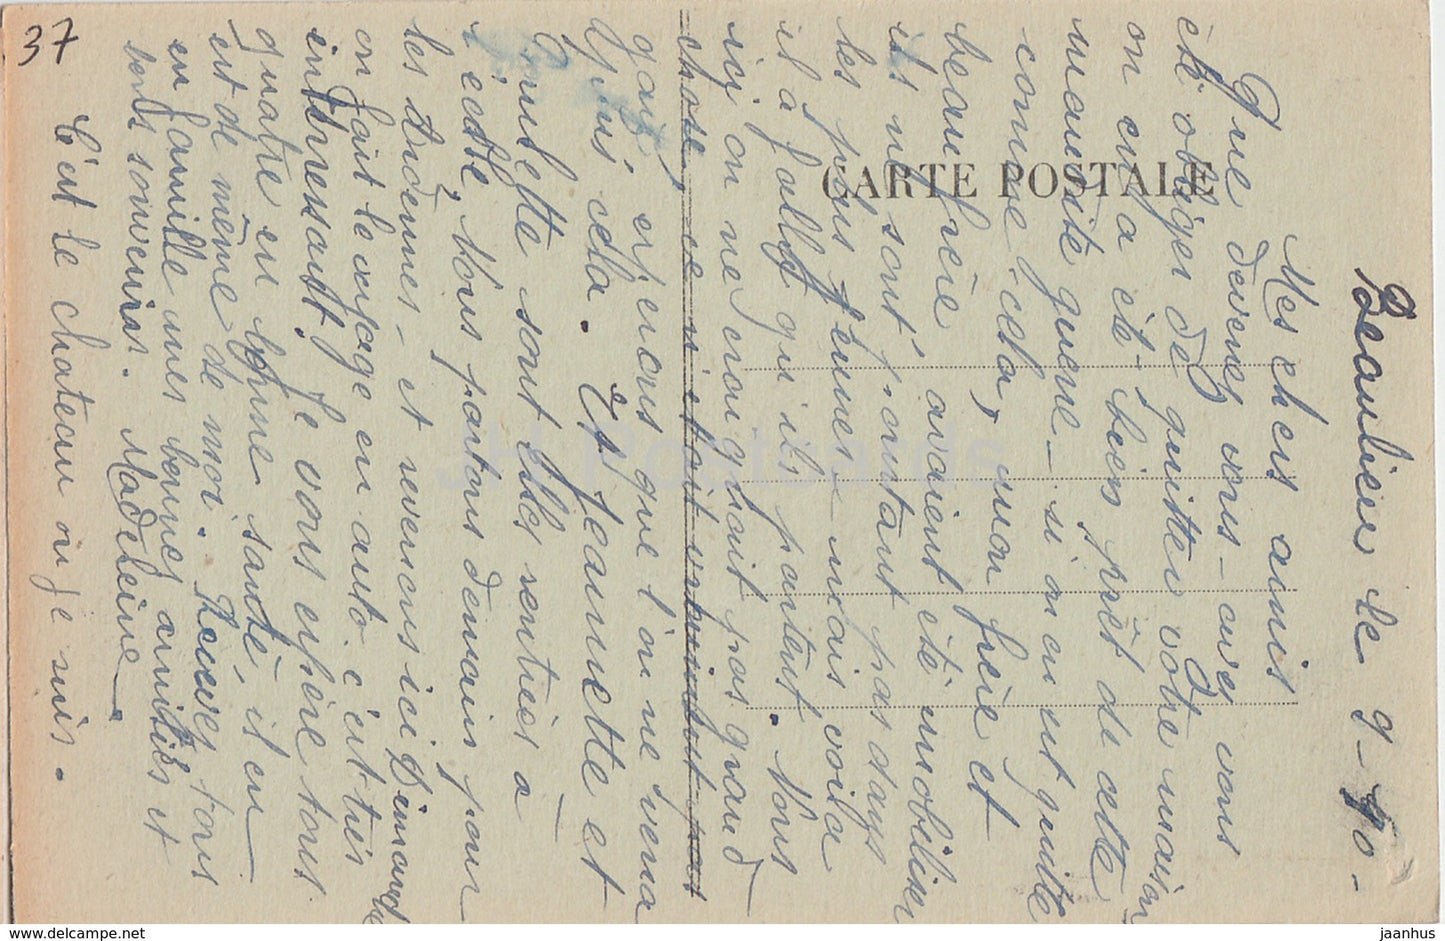 Beaulieu le 9-40-
Mes chers amis
Que devenez vous - avez vous
été obligés de quitter votre maison
on en a été bien prêt de cette
maudite guerre - si on en est quitte
comme cela, mon frère et
beau frère avaient été mobilisés
ils ne sont pourtant pas dans
les plus jeunes mais voila
il a fallu qu'ils partent. Nous
ici on ne craignait pas grand
chose, ce n'était vraiment pas
gai, espérons que l'on ne verra
plus cela. Et Jeannette et
sont elles rentrées à
l'école, Nous partons demain pour
les Ardennes - et revenons ici Dimanche
on fait le voyage en auto c'est très
intéressant. Je vous espère tous
quatre en bonne santé, il en
est de même de moi. Recevez tous
en famille mes bonnes amitiés et
bons souvenirs. Madeleine
C'est le chateau où je suis.
37
CARTE POSTALE
JH Postcards
jaanhus